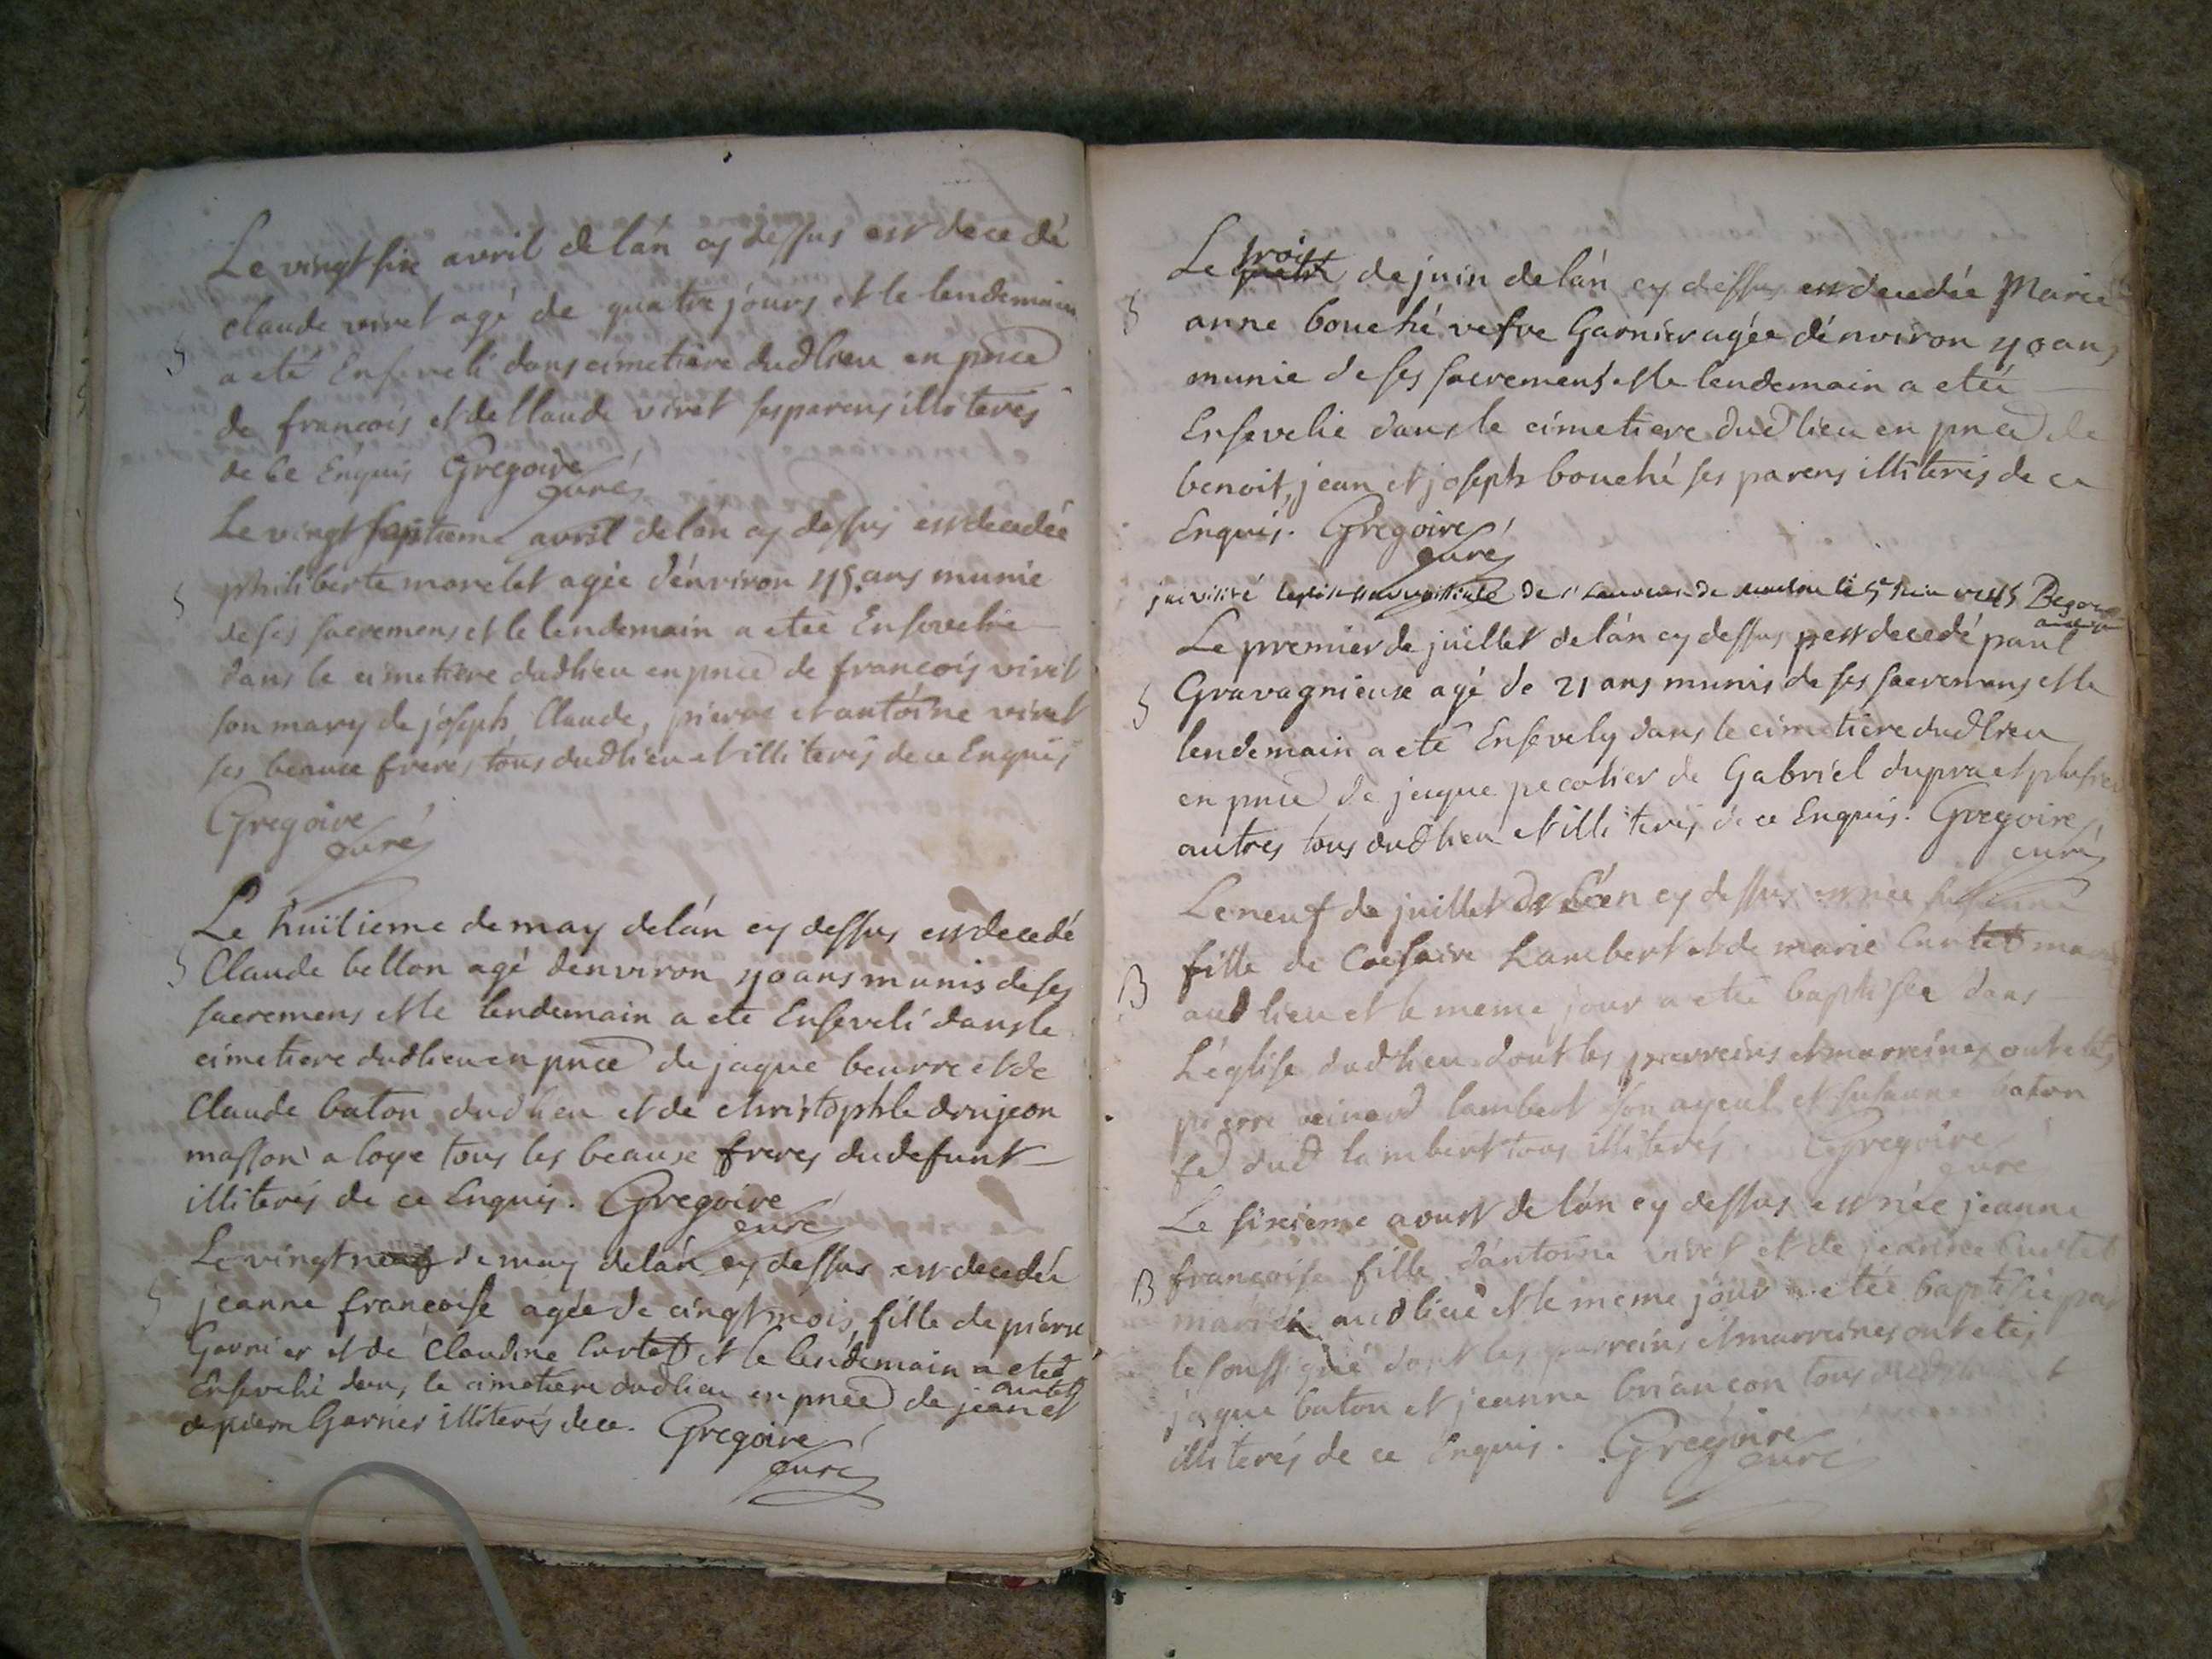 Le vingt six avril de lán cy dessus est decedé
claude viret agé de quatre jours et le lendemain
S a eté Enseveli dans cimetiére dudlieu en pnce
de francois et de Claude viret ses parens illiterés
de ce Enquis Gregoire
curé
Le vingt septieme avril de lán cy dessus est decedée
S philiberte morelet agée dénviron 45 ans munie
de ses sacremens et le lendemain a eteé Ensevelie
dans le cimetiere dudlieu en pnce de francois viret
son mary de joseph, Claude, pierre et antóine viret
ses beaux freres, tous dudlieu et illiterés de ce Enquis
Gregoire
curé
Le huitieme de may de lán cy dessus est decedé
S Claude bellon agé denviron 40 ans munis de ses
sacremens et le lendemain a eté Enseveli dans le
cimetiere dudlieu en pnce de jaque beurre et de
Claude baton dudlieu et de christophle donjeon
masson a loye tous les beaux freres du defunt
illiterés de ce Enquis. Gregoire
curé
Le vingt neuf de may de lán cy dessus est decedée
S jeanne francoise agée de cinqt mois, fille de piérre
Garnier et de Claudine Curtet et le lendemain a eteé
Enseveli dans le cimetiere dudlieu en pnce de jean curtet et
de pierre Garnier illiterés de ce. Gregoire
curé
Le trois quatre de juin de lán cy dessus est decedée Marie
S anne bouché vefve Garnier agée dénviron 40 ans
munie de ses sacremens et le lendemain a eteé
Ensevelie dans le cimetiere dud lieu en pnce de
benoit, jean et joseph bouché ses parens illiterés de ce
Enquis. Gregoire
curé
jai visité de le 5e juin
Le premier de juillet de lán cy dessus est decedé paul
S Gravagnieux agé de 21 ans munis de ses sacremens et le
lendemain a eté Ensevely dans le cimetiére dudlieu
en pnce de jaque pecolier de Gabriel dupra et plusieu
autres tous dudlieu et illiterés de ce Enquis. Gregoire
curé
Le neuf de juillet de lán cy dessus est née
fille de Caesaire Lambert et de marie Curtet
B aud lieu et le meme jour a eteé baptisée dans
L'église dudlieu dont les parreins et marreines ont etés
pierre lambert són ayeul et susanne baton
fe dud lambert tous illiterés. Gregoire
curé
Le sixieme aoust de lán cy dessus est née jeanne
B francoise fille dántoine viret et de jeanne Curtet
mariés audlieu et le meme jóur a etée baptisée par
le soussigné dont les parreins et marreines ont etés
jaque baton et jeanne briancon tous
illiterés de ce Enquis. Gregoire
curé